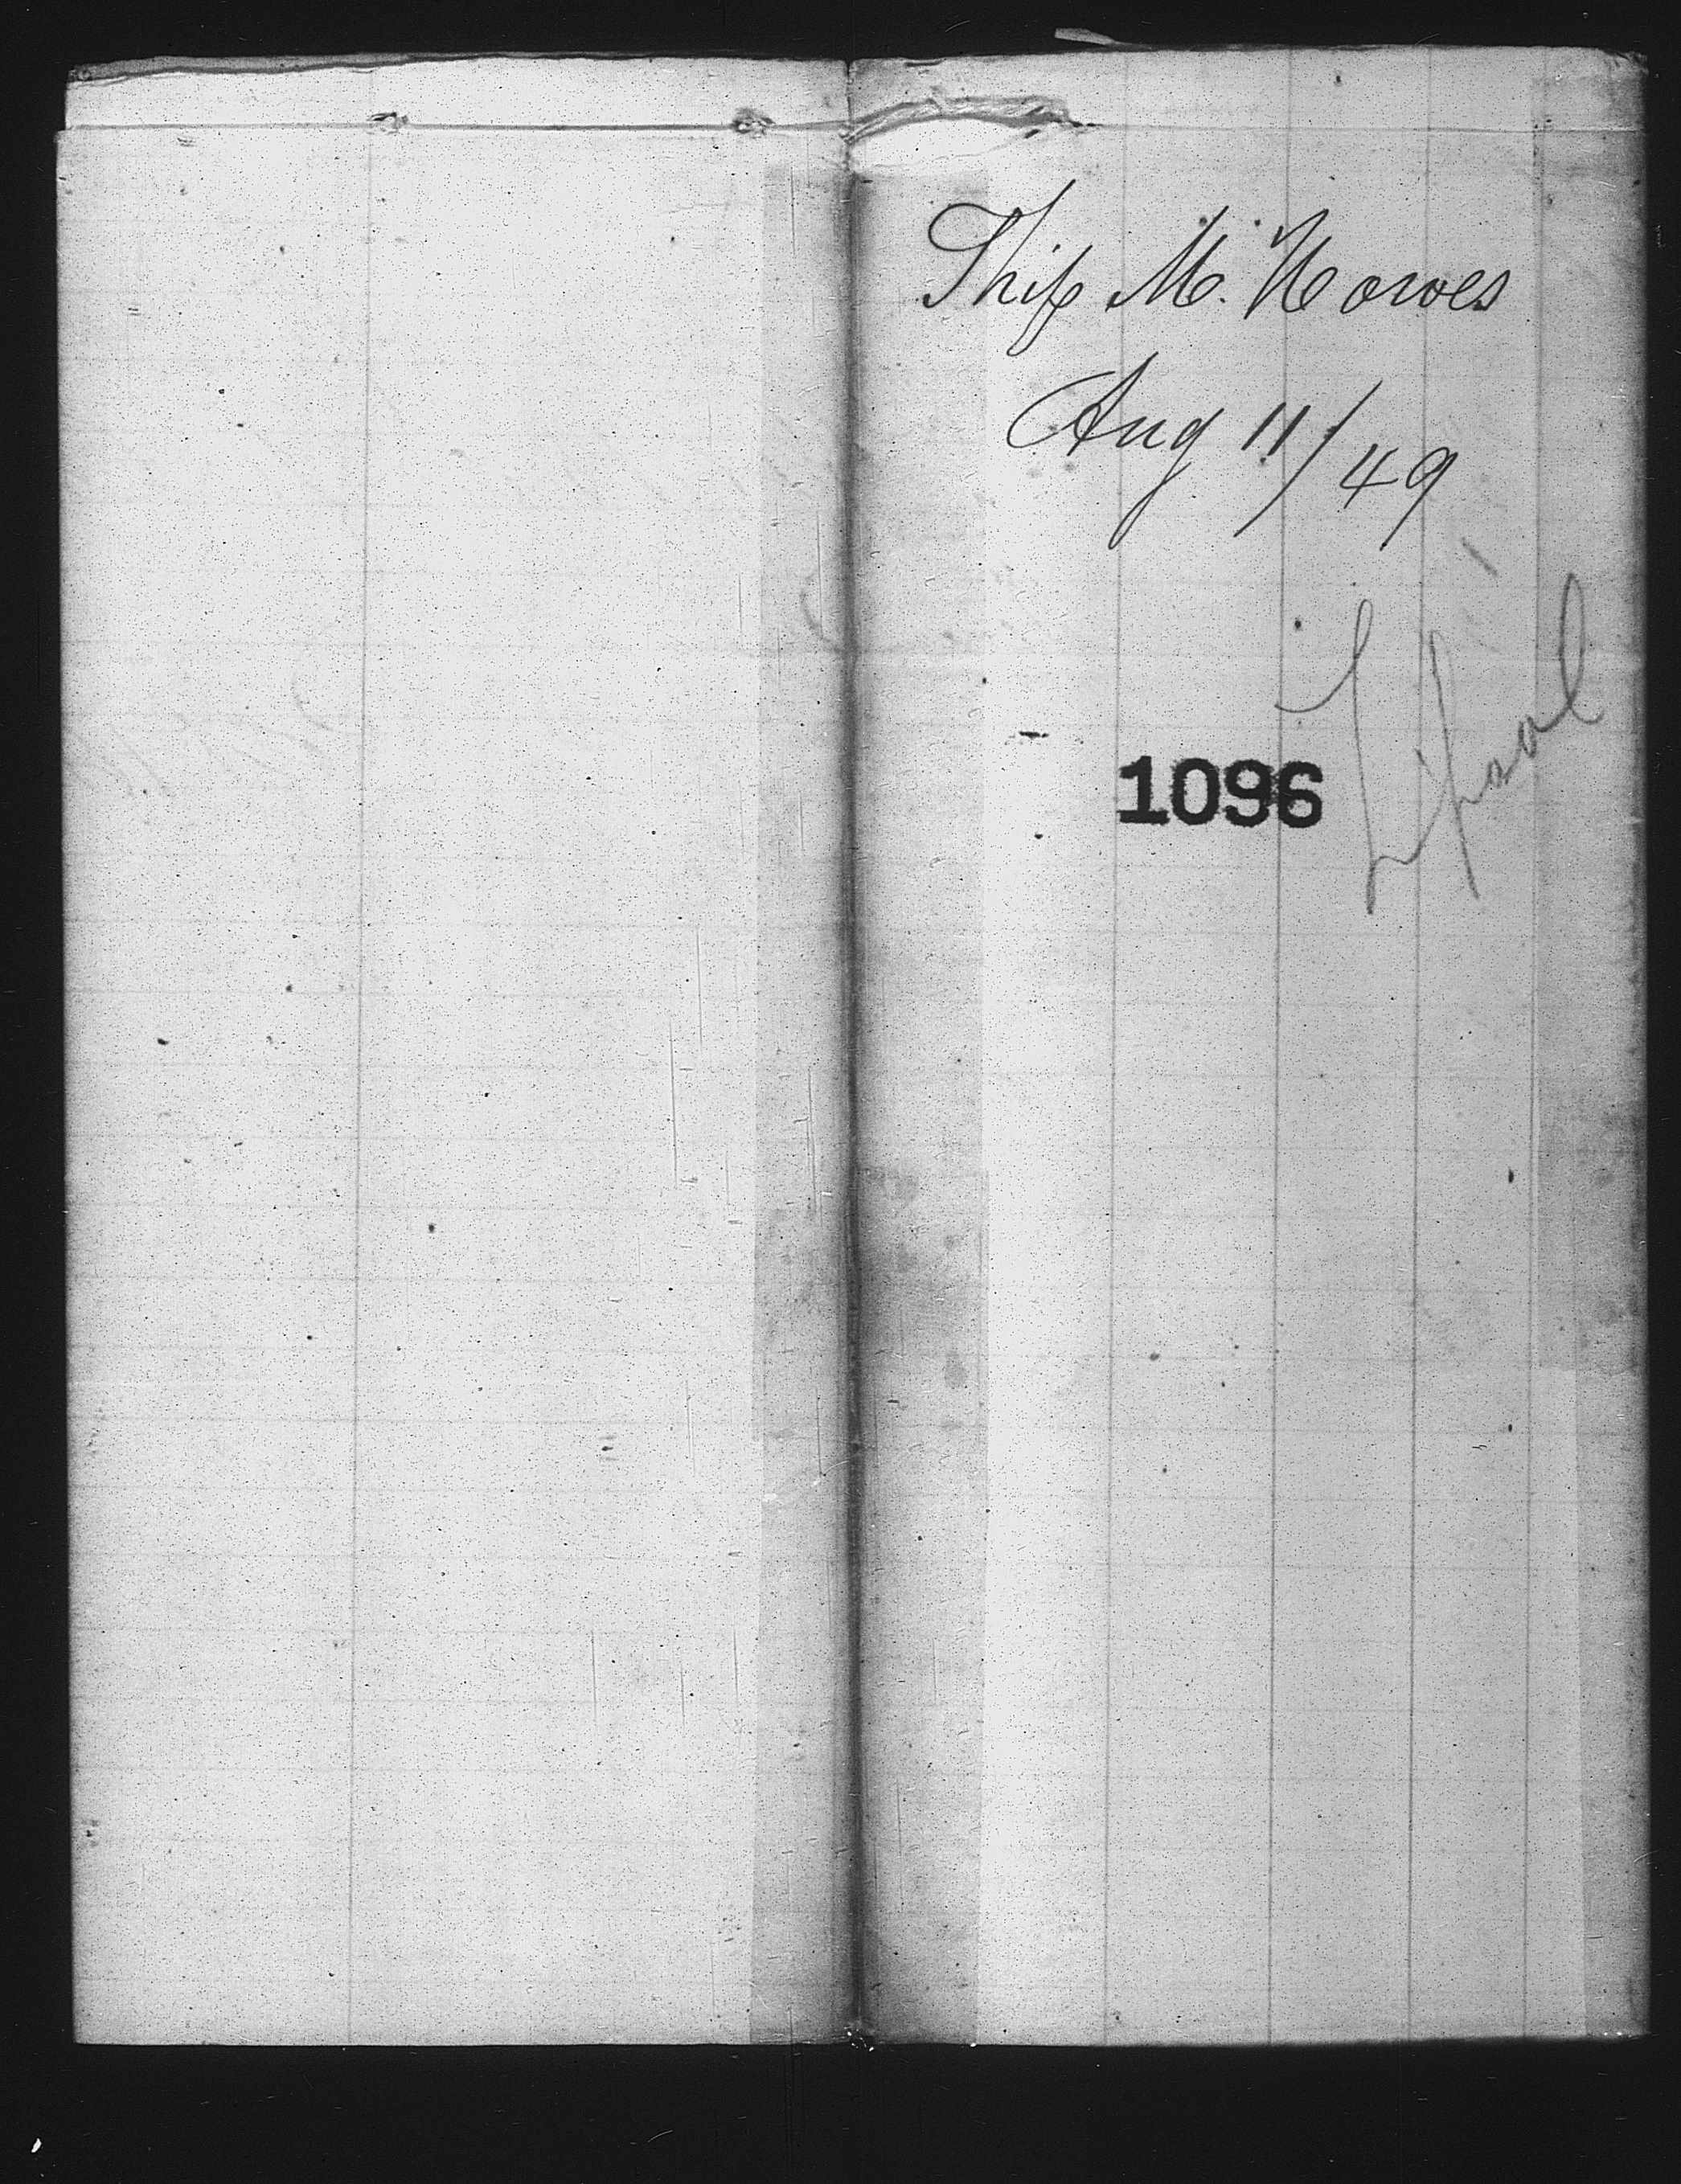 Ship M. Howes
Aug 11/49
L'pool
1096